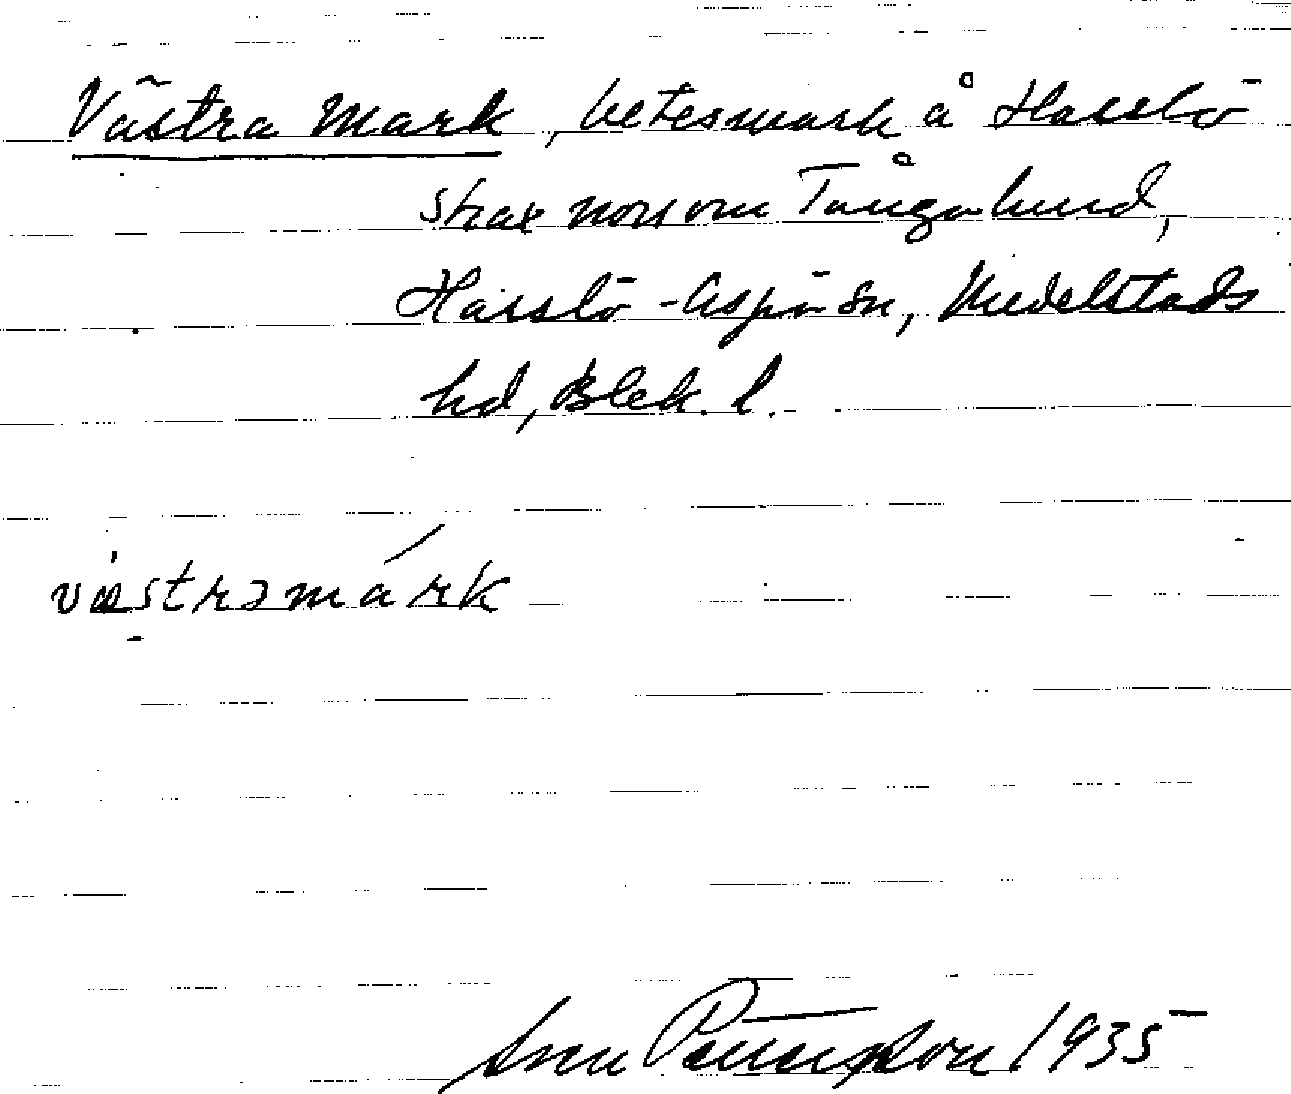 Västra Mark, betesmark å Hasslö
strax norr om Tångalund,
Hasslö-Aspö sn, Medelstads
hd, Blek. l.
væstrəmárk
Sven Petersson 1935